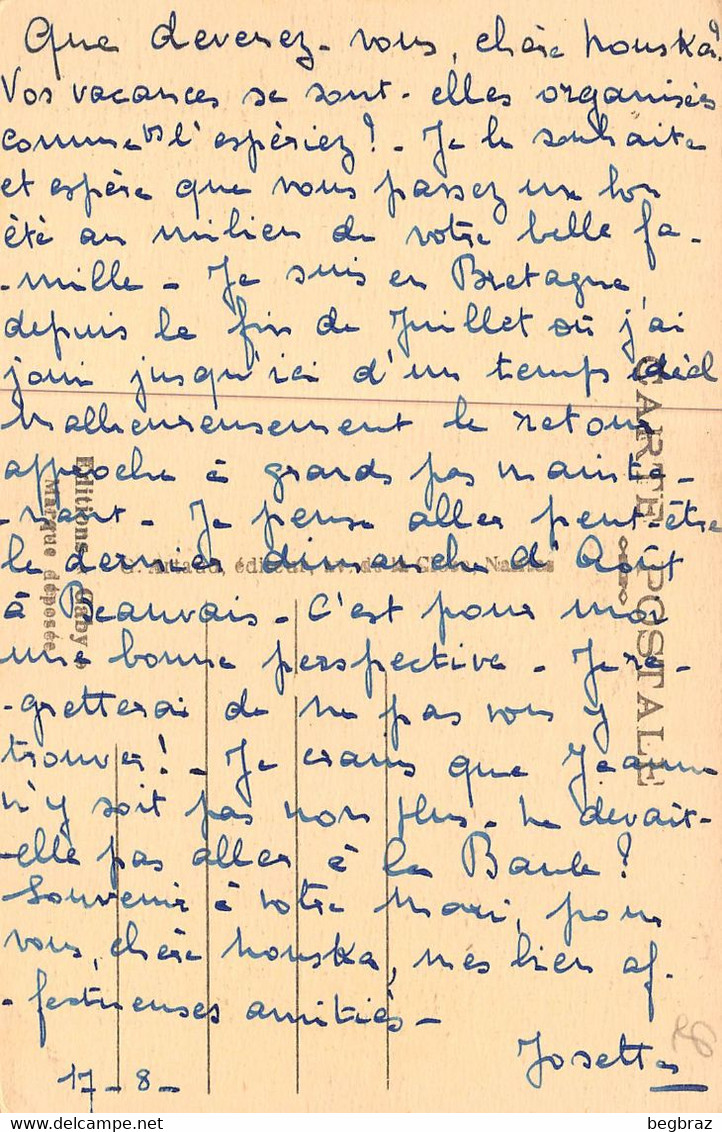 Que devenez-vous, chère Nouska?
Vos vacances se sont-elles organisées
comme vs l'espériez? - Je le souhaite
et espère que vous passez un bon
été au milieu de votre belle fa-
-mille - Je suis en Bretagne
depuis la fin de Juillet où j'ai
joui jusqu'ici d'un temps idéal
Malheureusement le retour
approche à grands pas mainte-
-nant - Je pense aller peut-être
le dernier dimanche d'Août
à Beauvais - C'est pour moi
une bonne perspective - Je re-
-gretterai de ne pas vous y
trouver! - Je crains que Jeanne
n'y soit pas non plus - Ne devait-
-elle pas aller à La Baule?
Souvenir à votre Mari, pour
vous, chère Nouska, mes bien af-
-fectueuses amitiés -
Josette
17-8-
CARTE POSTALE
Editions Gaby
Marque déposée
G. Artaud, éditeur, Nantes
26
begbraz